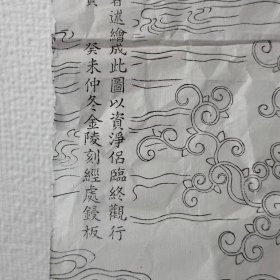 述繪成此圖以資淨侶臨終觀行
癸未仲冬金陵刻經處鋟板